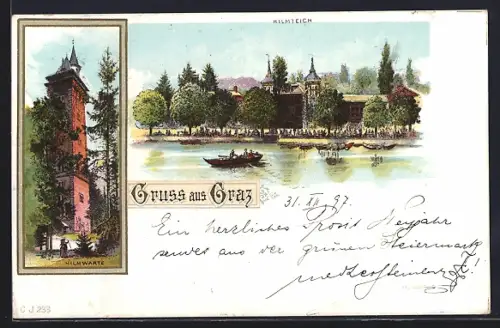 HILMTEICH
HILMWARTE
Gruss aus Graz
31. XII. 97.
Ein herzliches Prosit Neujahr
sendet aus der grünen Steiermark
C J 253